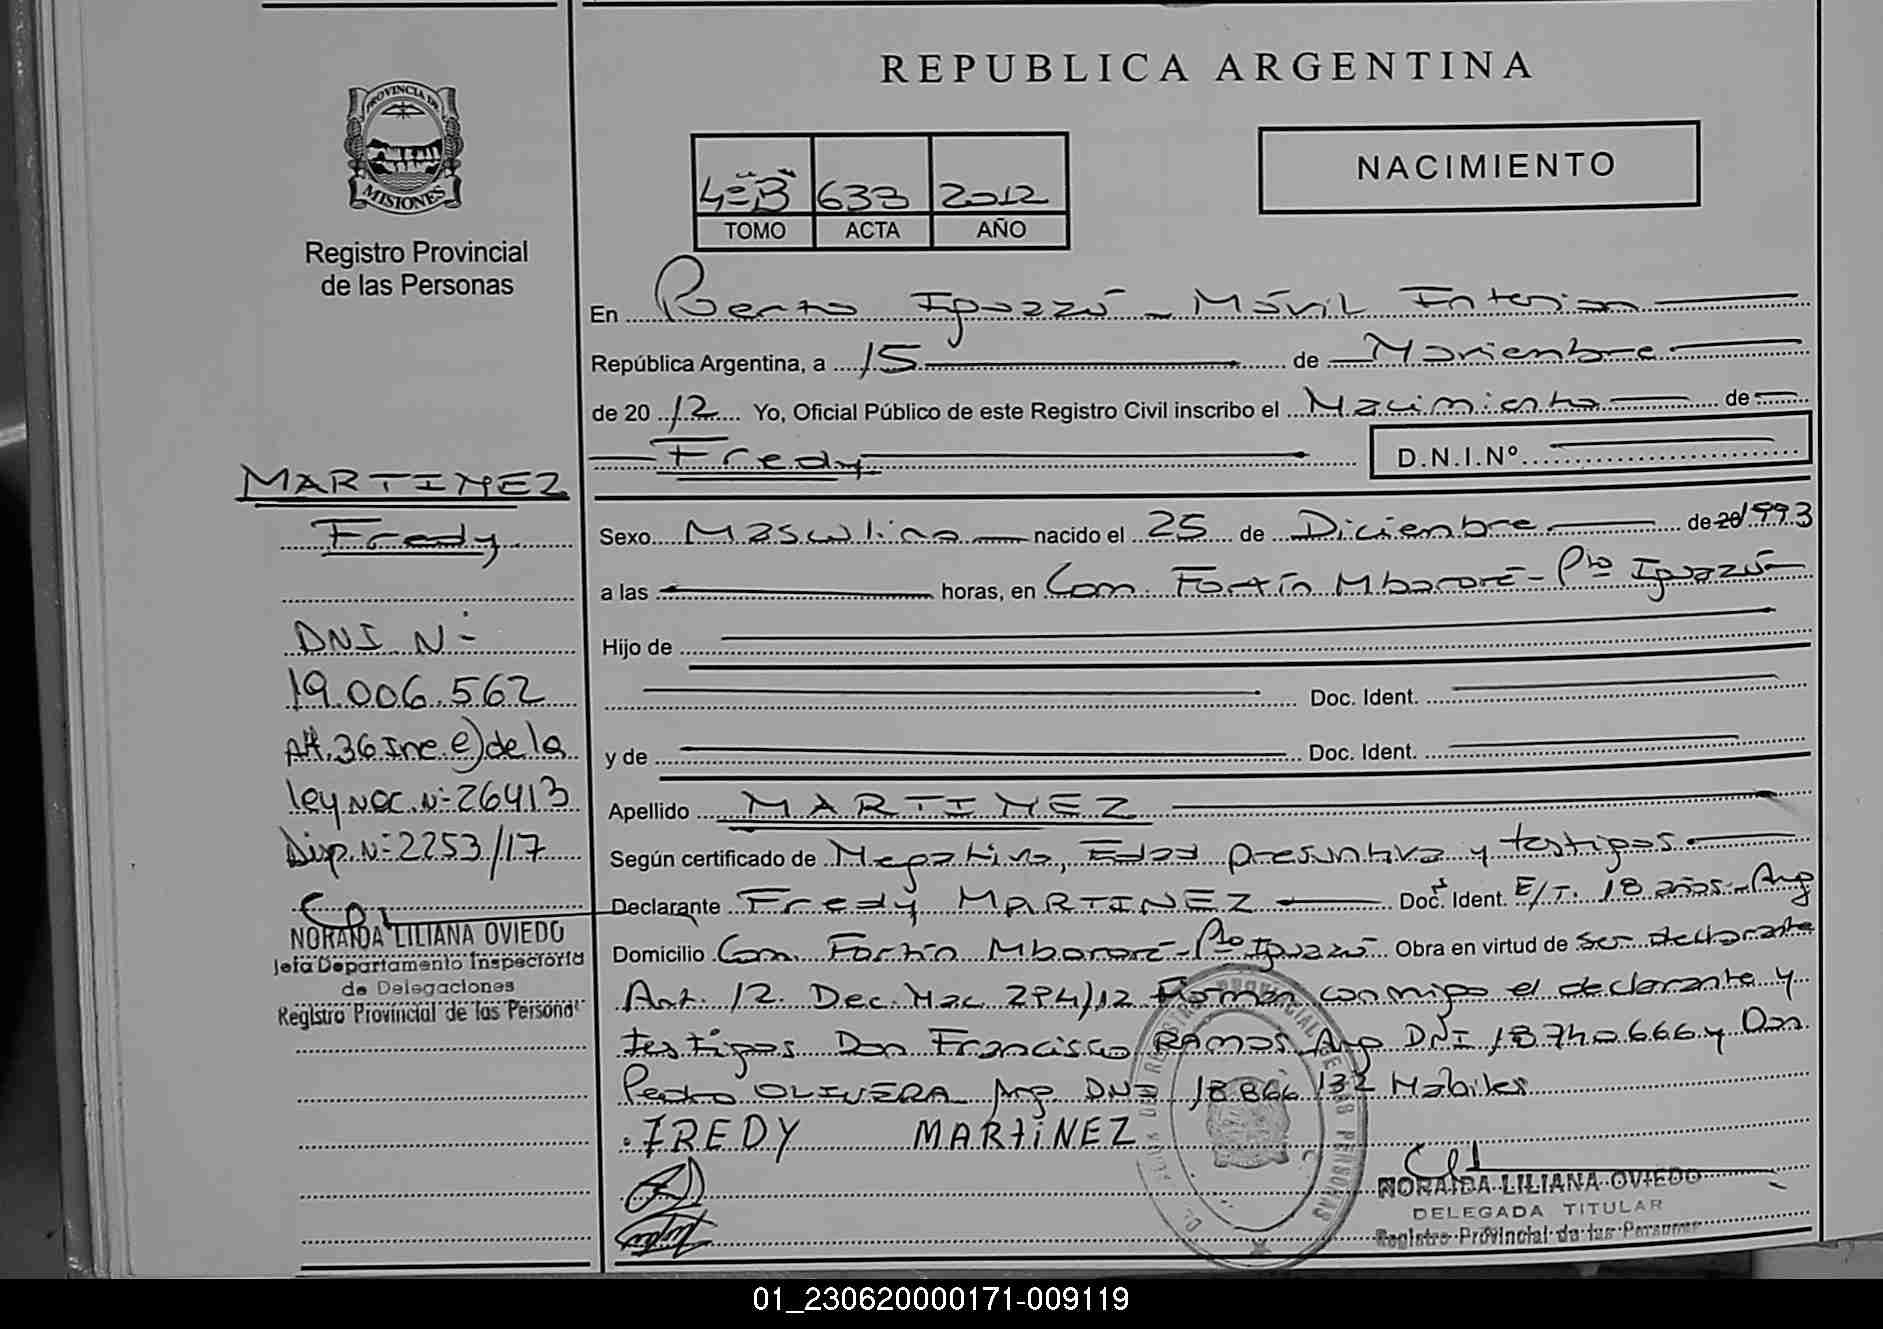 REPUBLICA ARGENTINA
PROVINCIA DE
MISIONES
Registro Provincial
de las Personas
NACIMIENTO
4º "B" 633 2012
TOMO ACTA AÑO
En Puerto Iguazú - Móvil Interior
República Argentina, a 15 de Noviembre
de 20 12 Yo, Oficial Público de este Registro Civil inscribo el Nacimiento de
Fredy D.N.I.Nº
MARTINEZ
Fredy
DNI Nº
19.006.562
Art. 36 Inc. e) de la
ley Nac. Nº 26413
Disp. Nº 2253/17
NORAIDA LILIANA OVIEDO
Jefa Departamento Inspectoría
de Delegaciones
Registro Provincial de las Personas
Sexo Masculino nacido el 25 de Diciembre de 20 1993
a las horas, en Com. Fortín Mbororé - Pto Iguazú
Hijo de
Doc. Ident.
y de Doc. Ident.
Apellido MARTINEZ
Según certificado de Negativo, Edad presuntiva y testigos
Declarante Fredy MARTINEZ Doc. Ident. E/T. 18 años - Arg
Domicilio Com. Fortín Mbororé - Pto Iguazú Obra en virtud de ser declarante
Art. 12 Dec. Nac. 294/12 Firman conmigo el declarante y
testigos Don Francisco RAMOS Arg DNI 18.740.666 y Don
Pedro OLIVERA Arg. DNI 18.866.132 Habiles
FREDY MARTiNEZ
NORAIDA LILIANA OVIEDO
DELEGADA TITULAR
Registro Provincial de las Personas
01_230620000171-009119